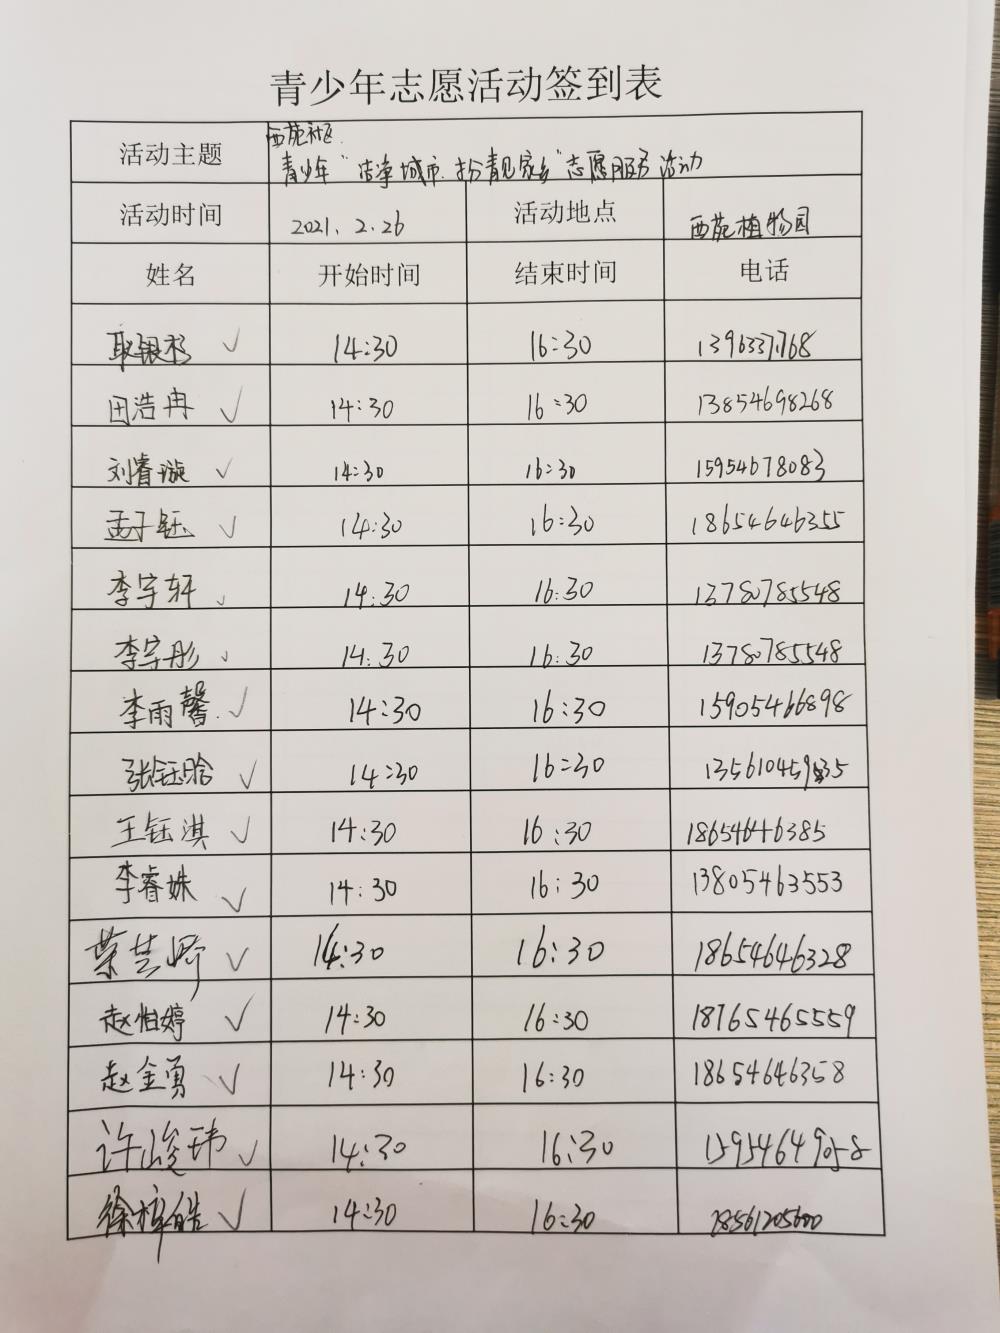 青少年志愿活动签到表
西苑社区
活动主题 青少年"洁净城市.扮靓家乡"志愿服务活动
活动时间 2021.2.26 活动地点 西苑植物园
姓名 开始时间 结束时间 电话
耿银杉 ✓ 14:30 16:30
田浩冉 ✓ 14:30 16:30 13854698268
刘睿漩 ✓ 14:30 16:30 15954678083
孟子钰 ✓ 14:30 16:30 18654646355
李宇轩 ✓ 14:30 16:30 13780785548
李宇彤 ✓ 14:30 16:30 13780785548
李雨馨 ✓ 14:30 16:30 15905466898
张钰晗 ✓ 14:30 16:30
王钰淇 ✓ 14:30 16:30 18654646385
李睿姝 ✓ 14:30 16:30 13805463553
✓ 14:30 16:30 18654646328
赵怡婷 ✓ 14:30 16:30 18765465559
赵金勇 ✓ 14:30 16:30 18654646358
许峻玮 ✓ 14:30 16:30 15954649058
徐梓皓 ✓ 14:30 16:30 18561205600